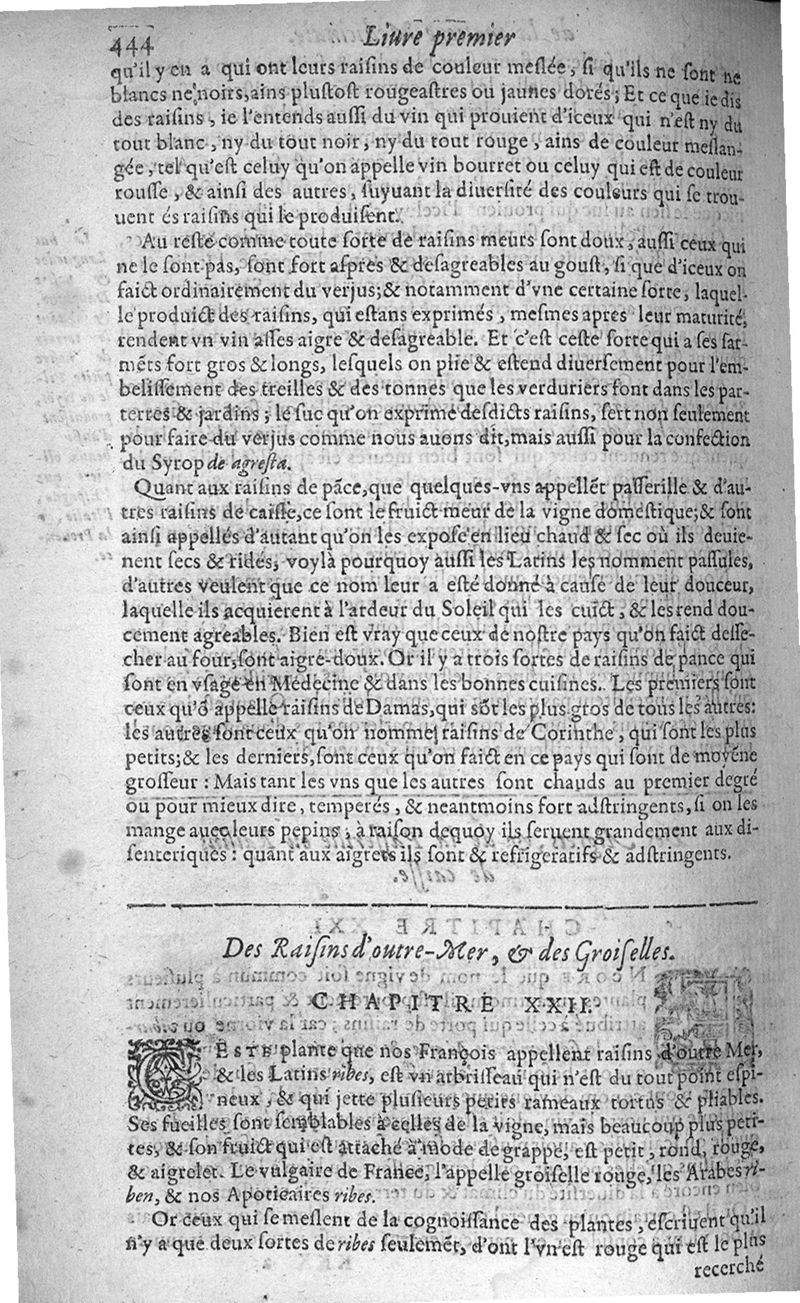 444 Liure premier
qu'il y en a qui ont leurs raisins de couleur meslée, si qu'ils ne sont ne
blancs ne noirs, ains plustost rougeastres ou jaunes dorés; Et ce que ie dis
des raisins, ie l'entends aussi du vin qui prouient d'iceux qui n'est ny du
tout blanc, ny du tout noir, ny du tout rouge, ains de couleur meslan-
gée, tel qu'est celuy qu'on appelle vin bourret ou celuy qui est de couleur
rousse, & ainsi des autres, suyuant la diuersité des couleurs qui se trou-
uent és raisins qui le produisent.
Au reste comme toute sorte de raisins meurs sont doux, aussi ceux qui
ne le sont pas, sont fort aspres & desagreables au goust, si que d'iceux on
faict ordinairement du verjus; & notamment d'vne certaine sorte, laquel-
le produict des raisins, qui estans exprimés, mesmes apres leur maturité,
rendent vn vin asses aigre & desagreable. Et c'est ceste sorte qui a ses sar-
mẽts fort gros & longs, lesquels on plie & estend diuersement pour l'em-
belissement des treilles & des tonnes que les verduriers font dans les par-
terres & jardins; le suc qu'on exprime desdicts raisins, sert non seulement
pour faire du verjus comme nous auons dit, mais aussi pour la confection
du Syrop de agresta.
Quant aux raisins de pãce, que quelques-vns appellẽt passerille & d'au-
tres raisins de caisse, ce sont le fruict meur de la vigne domestique; & sont
ainsi appellés d'autant qu'on les expose en lieu chaud & sec où ils deuie-
nent secs & ridés, voylà pourquoy aussi les Latins les nomment passules,
d'autres veulent que ce nom leur a esté donné à cause de leur douceur,
laquelle ils acquierent à l'ardeur du Soleil qui les cuict, & les rend dou-
cement agreables. Bien est vray que ceux de nostre pays qu'on faict desse-
cher au four, sont aigre-doux. Or il y a trois sortes de raisins de pance qui
sont en vsage en Médecine & dans les bonnes cuisines. Les premiers sont
ceux qu'õ appelle raisins de Damas, qui sõt les plus gros de tous les autres:
les autres sont ceux qu'on nomme raisins de Corinthe, qui sont les plus
petits; & les derniers, sont ceux qu'on faict en ce pays qui sont de moyẽne
grosseur: Mais tant les vns que les autres sont chauds au premier degré
ou pour mieux dire, temperés, & neantmoins fort adstringents, si on les
mange auec leurs pepins; à raison dequoy ils seruent grandement aux di-
senteriques: quant aux aigrets ils sont & refrigeratifs & adstringents.
Des Raisins d'outre-Mer, & des Groiselles.
CHAPITRE XXII.
CESTE plante que nos François appellent raisins d'outre Mer,
& les Latins ribes, est vn arbrisseau qui n'est du tout point espi-
neux, & qui jette plusieurs petits rameaux tortus & pliables.
Ses fueilles sont semblables à celles de la vigne, mais beaucoup plus peti-
tes, & son fruict qui est attaché à mode de grappe, est petit, rond, rouge,
& aigrelet. Le vulgaire de France, l'appelle groiselle rouge, les Arabes ri-
ben, & nos Apoticaires ribes.
Or ceux qui se meslent de la cognoissance des plantes, escriuent qu'il
n'y a que deux sortes de ribes seulemẽt, d'ont l'vn est rouge qui est le plus
recerché